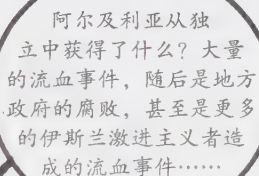 阿尔及利亚从独
立中获得了什么？大量
的流血事件，随后是地方
政府的腐败，甚至是更多
的伊斯兰激进主义者造
成的流血事件……